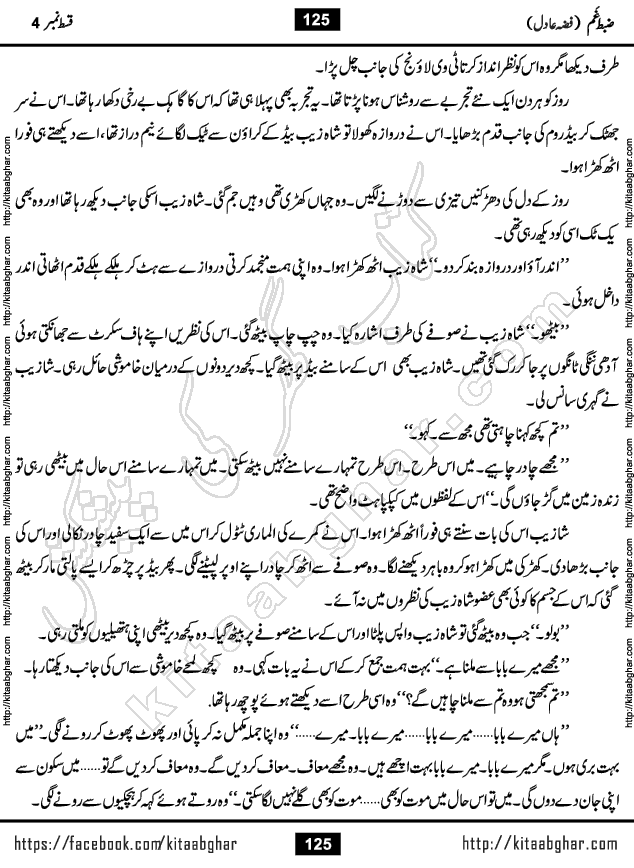 ضبطِ غم (فضہ عادل)
125
قسط نمبر 4
طرف دیکھا مگر وہ اس کو نظر انداز کرتا ٹی وی لاؤنج کی جانب چل پڑا۔
روز کو ہر دن ایک نئے تجربے سے روشناس ہونا پڑتا تھا۔ یہ تجربہ بھی پہلا ہی تھا کہ اس کا گاہک بے رخی دکھا رہا تھا۔ اس نے سر
جھٹک کر بیڈ روم کی جانب قدم بڑھایا۔ اس نے دروازہ کھولا تو شاہ زیب بیڈ کے کراؤن سے ٹیک لگائے نیم دراز تھا، اسے دیکھتے ہی فورا
اٹھ کھڑا ہوا۔
روز کے دل کی دھڑکنیں تیزی سے دوڑنے لگیں۔ وہ جہاں کھڑی تھی وہیں جم گئی۔ شاہ زیب اسکی جانب دیکھ رہا تھا اور وہ بھی
یک ٹک اسی کو دیکھ رہی تھی۔
’’اندر آؤ اور دروازہ بند کر دو۔‘‘ شاہ زیب اٹھ کھڑا ہوا۔ وہ اپنی ہمت منجمد کرتی دروازے سے ہٹ کر ہلکے ہلکے قدم اٹھاتی اندر
داخل ہوئی۔
’’بیٹھو۔‘‘ شاہ زیب نے صوفے کی طرف اشارہ کیا۔ وہ چپ چاپ بیٹھ گئی۔ اس کی نظریں اپنے ہاف سکرٹ سے جھانکتی ہوئی
آدھی ننگی ٹانگوں پر جا کر رک گئی تھیں۔ شاہ زیب بھی اس کے سامنے بیڈ پر بیٹھ گیا۔ کچھ دیر دونوں کے درمیان خاموشی حائل رہی۔ شازیب
نے گہری سانس لی۔
’’تم کچھ کہنا چاہتی تھی مجھ سے۔ کہو۔‘‘
’’مجھے چادر چاہیے۔ میں اس طرح۔ اس طرح تمہارے سامنے نہیں بیٹھ سکتی۔ میں تمہارے سامنے اس حال میں بیٹھی رہی تو
زندہ زمین میں گڑ جاؤں گی۔‘‘ اس کے لفظوں میں کپکپاہٹ واضح تھی۔
شازیب اس کی بات سنتے ہی فوراً اٹھ کھڑا ہوا۔ اس نے کمرے کی الماری ٹٹول کر اس میں سے ایک سفید چادر نکالی اور اس کی
جانب بڑھا دی۔ کھڑکی میں کھڑا ہو کر وہ باہر دیکھنے لگا۔ وہ صوفے سے اٹھ کر چادر اپنے اوپر لپیٹنے لگی۔ پھر بیڈ پر چڑھ کر ایسے پالتی مار کر بیٹھ
گئی کہ اس کے جسم کا کوئی بھی عضو شاہ زیب کی نظروں میں نہ آئے۔
’’بولو۔‘‘ جب وہ بیٹھ گئی تو شاہ زیب واپس پلٹا اور اس کے سامنے صوفے پر بیٹھ گیا۔ وہ کچھ دیر بیٹھی اپنی ہتھیلیوں کو ملتی رہی۔
’’مجھے میرے بابا سے ملنا ہے۔‘‘ بہت ہمت جمع کر کے اس نے یہ بات کہی۔ وہ کچھ لمحے خاموشی سے اس کی جانب دیکھتا رہا۔
’’تم سمجھتی ہو وہ تم سے ملنا چاہیں گے؟‘‘ وہ اسی طرح اسے دیکھتے ہوئے پوچھ رہا تھا۔
’’ہاں میرے بابا......میرے بابا......میرے بابا۔ میرے......‘‘ وہ اپنا جملہ مکمل نہ کر پائی اور پھوٹ پھوٹ کر رونے لگی۔ ’’میں
بہت بری ہوں۔ مگر میرے بابا۔ میرے بابا بہت اچھے ہیں۔ وہ مجھے معاف۔ معاف کر دیں گے۔ وہ معاف کر دیں گے تو......میں سکون سے
اپنی جان دے دوں گی۔ میں تو اس حال میں موت کو بھی......موت کو بھی گلے نہیں لگا سکتی۔‘‘ وہ روتے ہوئے کہہ کر ہچکیوں سے رونے لگی۔
http://kitaabghar.com http://kitaabghar.com http://kitaabghar.com http://kitaabghar.com http://kitaabghar.com http://kitaabghar.com
http://kitaabghar.com http://kitaabghar.com http://kitaabghar.com http://kitaabghar.com http://kitaabghar.com http://kitaabghar.com
کتاب گھر کی پیشکش
kitaabghar.com
https://facebook.com/kitaabghar
125
http://kitaabghar.com